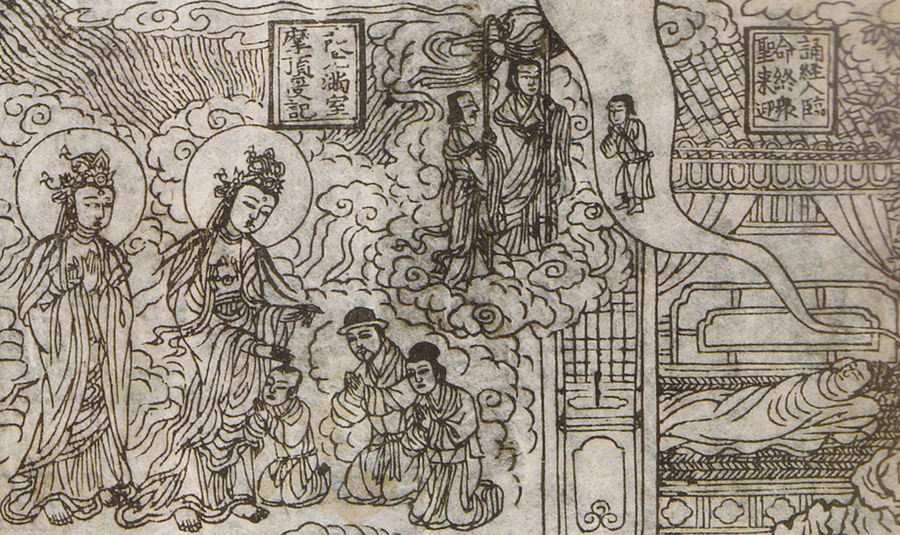 誦經人臨
命終衆
聖来迎
滿室
摩頂受記